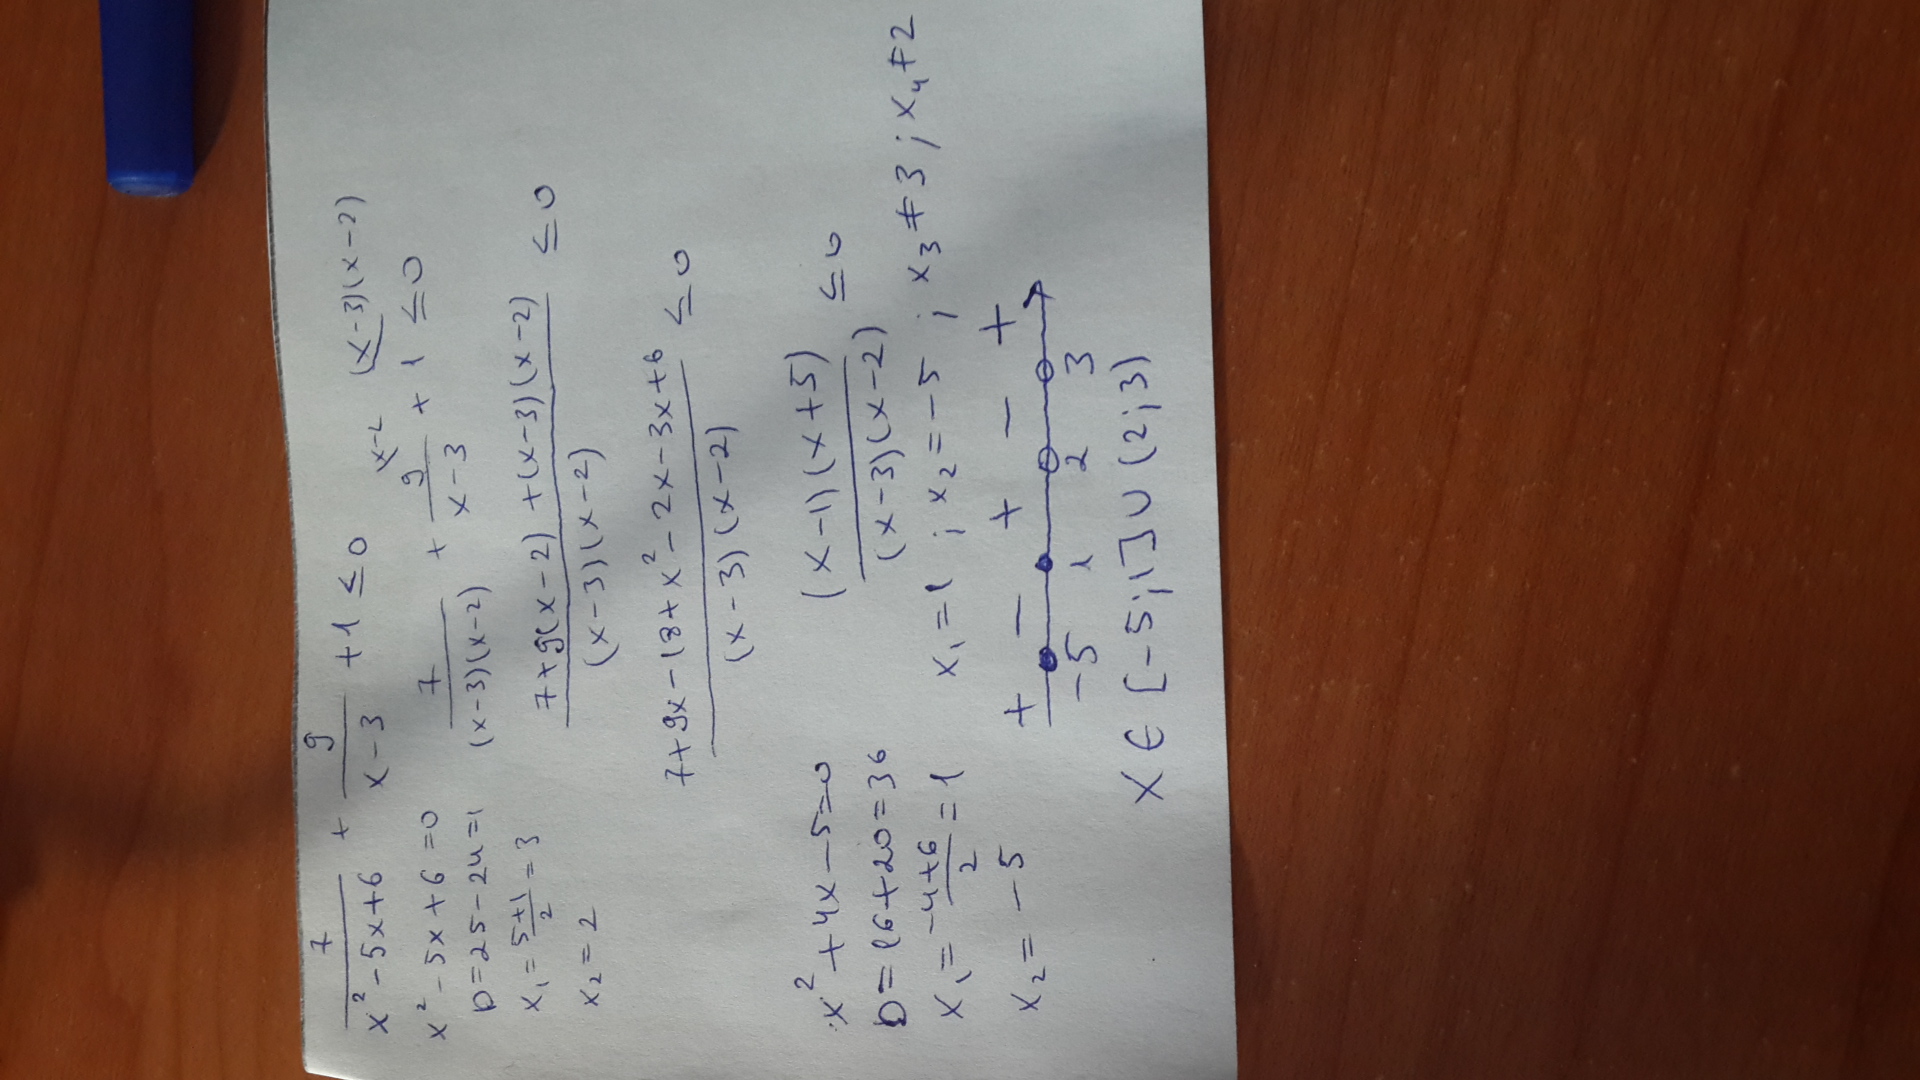 7/(x² - 5x + 6) + 9/(x - 3) + 1 ≤ 0
x² - 5x + 6 = 0
D = 25 - 24 = 1
x₁ = (5+1)/2 = 3
x₂ = 2
7/((x-3)(x-2)) + 9/(x-3) + 1 ≤ 0
x-2
(x-3)(x-2)
(7 + 9(x-2) + (x-3)(x-2))/((x-3)(x-2)) ≤ 0
(7 + 9x - 18 + x² - 2x - 3x + 6)/((x-3)(x-2)) ≤ 0
x² + 4x - 5 = 0
D = 16 + 20 = 36
x₁ = (-4+6)/2 = 1
x₂ = -5
((x-1)(x+5))/((x-3)(x-2)) ≤ 0
x₁ = 1 ; x₂ = -5 ; x₃ ≠ 3 ; x₄ ≠ 2
+ - + - +
-5 1 2 3
x ∈ [-5;1] ∪ (2;3)